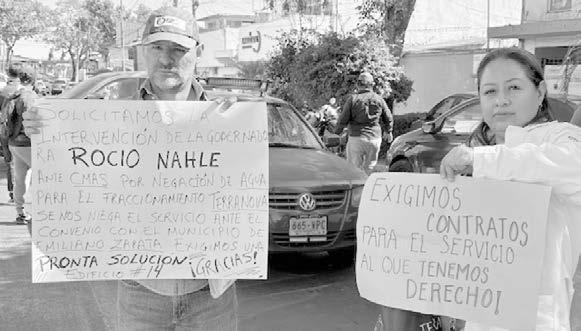 SOLICITAMOS LA
INTERVENCIÓN DE LA GOBERNADO
RA ROCIO NAHLE
ANTE CMAS POR NEGACIÓN DE AGUA
PARA EL FRACCIONAMIENTO TERRANOVA
SE NOS NIEGA EL SERVICIO ANTE EL
CONVENIO CON EL MUNICIPIO DE
EMILIANO ZAPATA EXIGIMOS UNA
PRONTA SOLUCIÓN ¡GRACIAS!
EDIFICIO #14
EXIGIMOS
CONTRATOS
PARA EL SERVICIO
AL QUE TENEMOS
DERECHO!